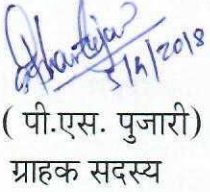 5/4/2018
( पी.एस. पुजारी)
ग्राहक सदस्य